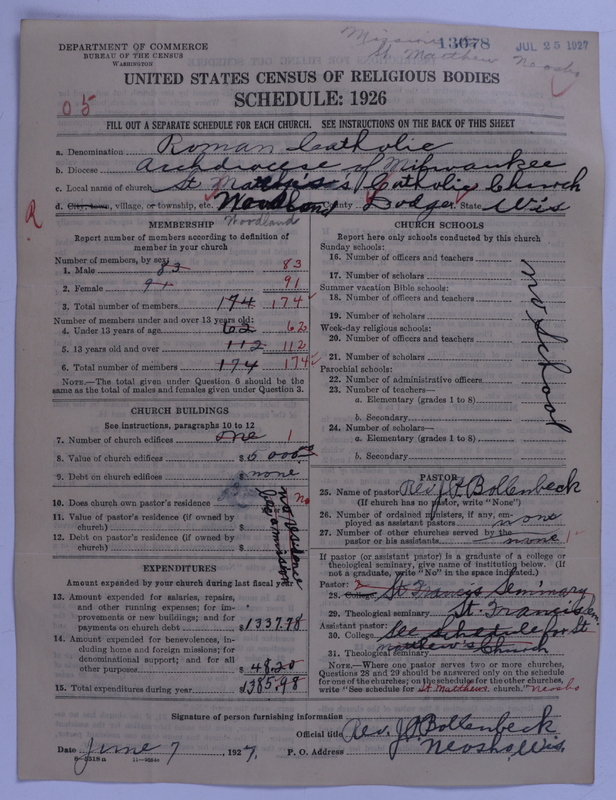 Mission
St. Matthew Neosho
13078
JUL 25 1927
DEPARTMENT OF COMMERCE
BUREAU OF THE CENSUS
WASHINGTON
UNITED STATES CENSUS OF RELIGIOUS BODIES
SCHEDULE: 1926
05
FILL OUT A SEPARATE SCHEDULE FOR EACH CHURCH. SEE INSTRUCTIONS ON THE BACK OF THIS SHEET
a. Denomination Roman Catholic
b. Diocese Archdiocese of Milwaukee
c. Local name of church St. Catholic Church
d. City, town, village, or township, etc. Woodland County Dodge State Wis
R
Woodland
MEMBERSHIP
Report number of members according to definition of
member in your church
Number of members, by sex:
1. Male 83 83
2. Female 91 91
3. Total number of members 174 174
Number of members under and over 13 years old:
4. Under 13 years of age 62 62
5. 13 years old and over 112 112
6. Total number of members 174 174
NOTE.—The total given under Question 6 should be the
same as the total of males and females given under Question 3.
CHURCH BUILDINGS
See instructions, paragraphs 10 to 12
7. Number of church edifices one 1
8. Value of church edifices $6000
9. Debt on church edifices $ none
10. Does church own pastor's residence No
11. Value of pastor's residence (if owned by
church) $
12. Debt on pastor's residence (if owned by
church) $
no residence
being a mission
EXPENDITURES
Amount expended by your church during last fiscal year
13. Amount expended for salaries, repairs,
and other running expenses; for im-
provements or new buildings; and for
payments on church debt $1337.78
14. Amount expended for benevolences, in-
cluding home and foreign missions; for
denominational support; and for all
other purposes $48.20
15. Total expenditures during year $1385.98
CHURCH SCHOOLS
Report here only schools conducted by this church
Sunday schools:
16. Number of officers and teachers
17. Number of scholars
Summer vacation Bible schools:
18. Number of officers and teachers
19. Number of scholars
Week-day religious schools:
20. Number of officers and teachers
21. Number of scholars
Parochial schools:
22. Number of administrative officers
23. Number of teachers—
a. Elementary (grades 1 to 8)
b. Secondary
24. Number of scholars—
a. Elementary (grades 1 to 8)
b. Secondary
no School
PASTOR
25. Name of pastor Rev. J. F. Bollenbeck
(If church has no pastor, write "None")
26. Number of ordained ministers, if any, em-
ployed as assistant pastors none
27. Number of other churches served by the
pastor or his assistants none 1
If pastor (or assistant pastor) is a graduate of a college or
theological seminary, give name of institution below. (If
not a graduate, write "No" in the space indicated.)
Pastor:
28. College St. Francis Seminary
29. Theological seminary St. Francis Sem.
Assistant pastor:
30. College See schedule for St.
31. Theological seminary Matthew's Church
NOTE.—Where one pastor serves two or more churches,
Questions 28 and 29 should be answered only on the schedule
for one of the churches; on the schedules for the other churches
write "See schedule for St. Matthews church." Neosho
Signature of person furnishing information Rev. J. F. Bollenbeck
Official title
Date June 7, 1927. P. O. Address Neosho, Wis.
8—2318a 11—9584b